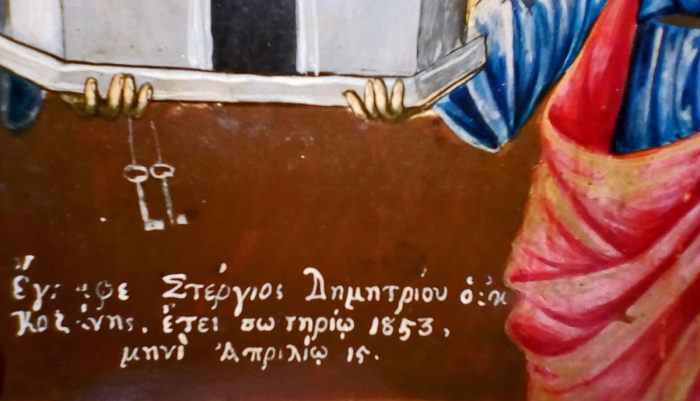 Στέργιος Δημητρίου ὁ ἐκ
Κοζάνης. ἔτει σωτηρίῳ 1853,
μηνὶ Ἀπριλίῳ 15.